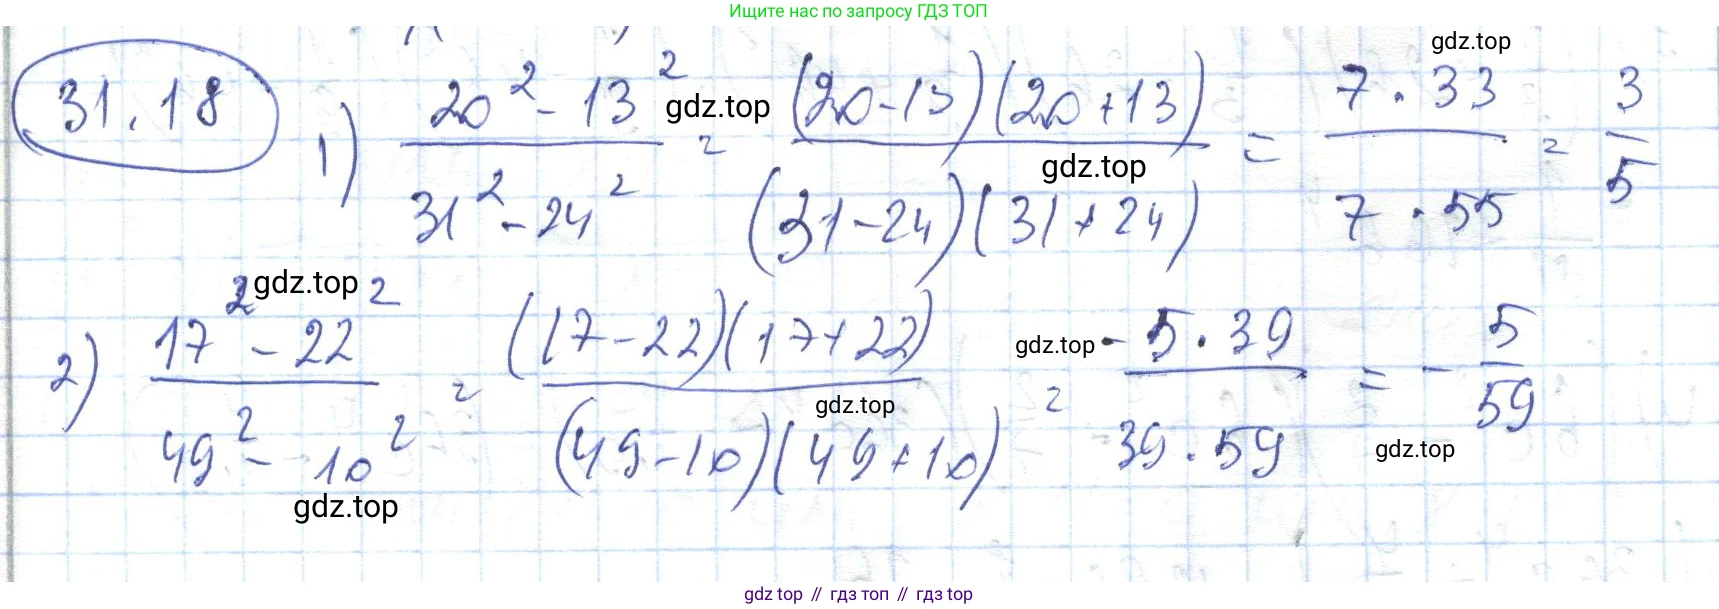 Ищите нас по запросу ГДЗ ТОП
gdz.top
31.18
1) (20² - 13²)/(31² - 24²) = ((20-13)(20+13))/((31-24)(31+24)) = (7·33)/(7·55) = 3/5
gdz.top
gdz.top
gdz.top
2) (17² - 22²)/(49² - 10²) = ((17-22)(17+22))/((49-10)(49+10)) = (-5·39)/(39·59) = -5/59
gdz.top
gdz.top
gdz.top
gdz.top
gdz top // гдз топ // гдз top